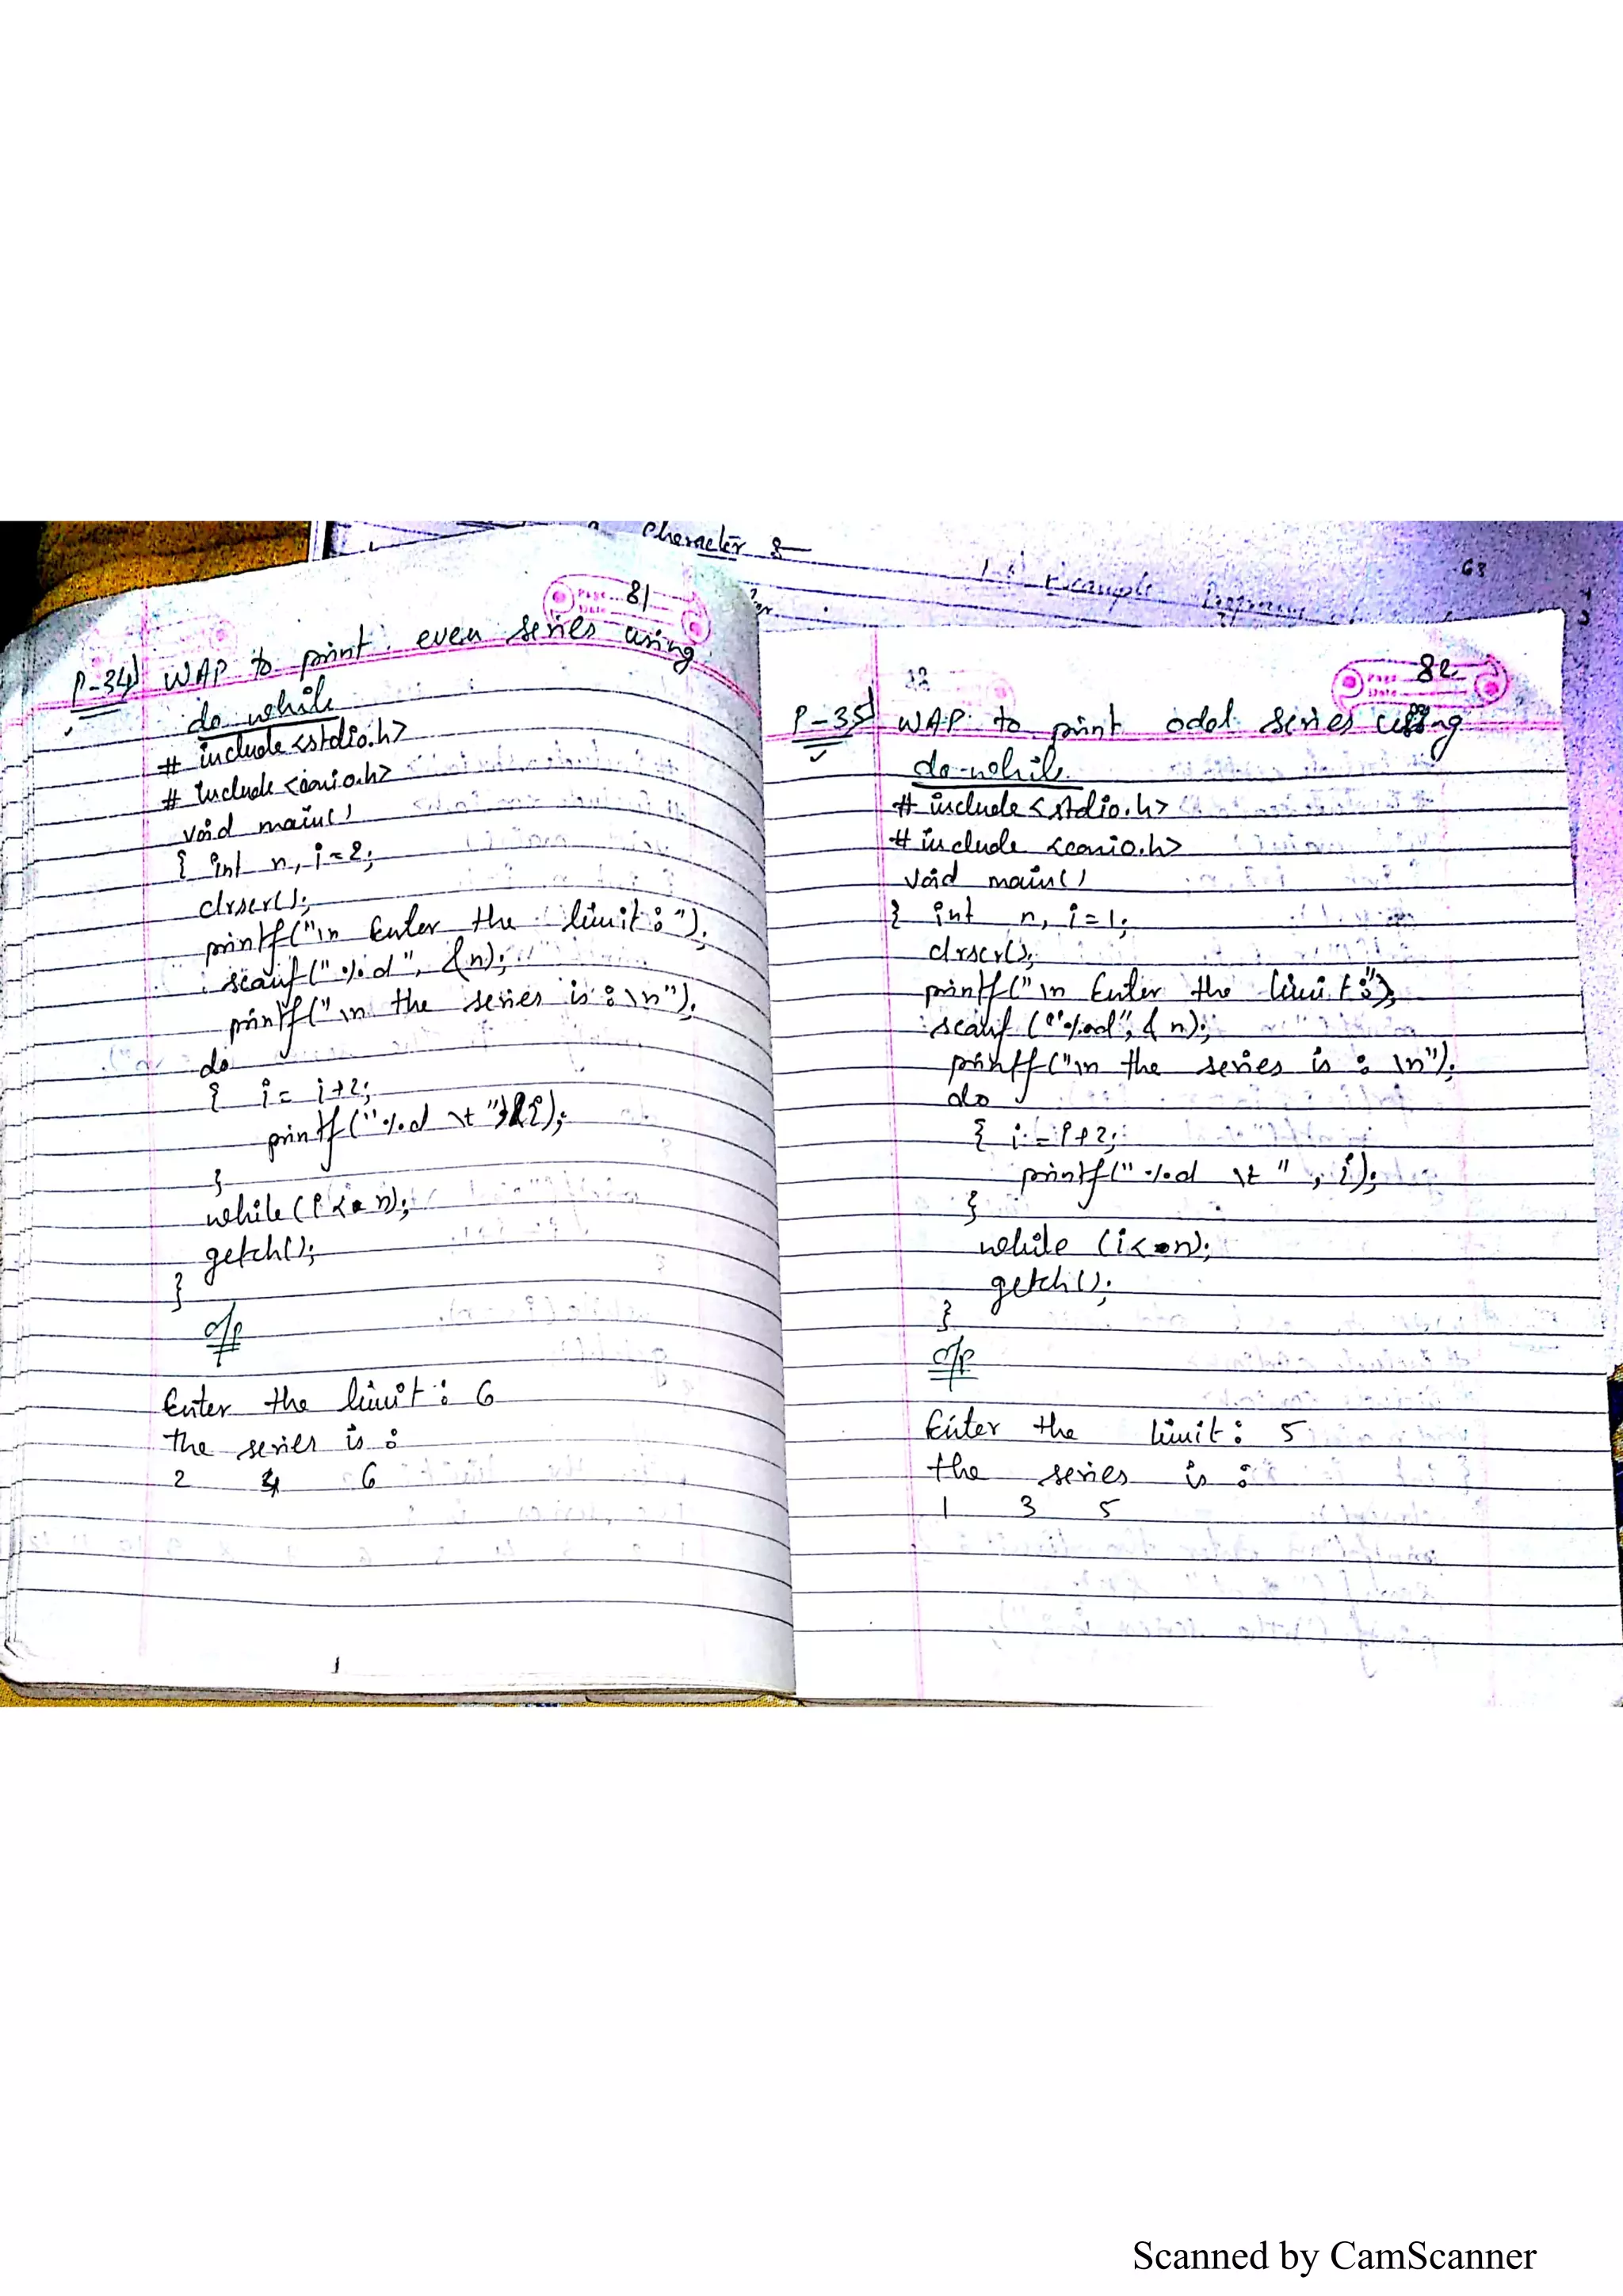 Character :-
1.) Example Programs
63
Page... 81
Date
P-34) WAP to print even series using
do while
# include <stdio.h>
# include <conio.h>
void main()
{ int n, i=2;
clrscr();
printf("\n Enter the limit : ");
scanf("%d", &n);
printf("\n the series is : \n");
do
{ i = i+2;
printf("%d \t", i);
}
while (i < n);
getch();
}
o/p
Enter the limit : 6
the series is :
2 4 6
Page 82
Date
P-35) WAP to print odd series using
do-while
# include <stdio.h>
# include <conio.h>
void main()
{ int n, i=1;
clrscr();
printf("\n Enter the limit :");
scanf ("%d", & n);
printf("\n the series is : \n");
do
{ i = i+2;
printf("%d \t ", i);
}
while (i < n);
getch();
}
o/p
Enter the limit : 5
the series is :
1 3 5
Scanned by CamScanner